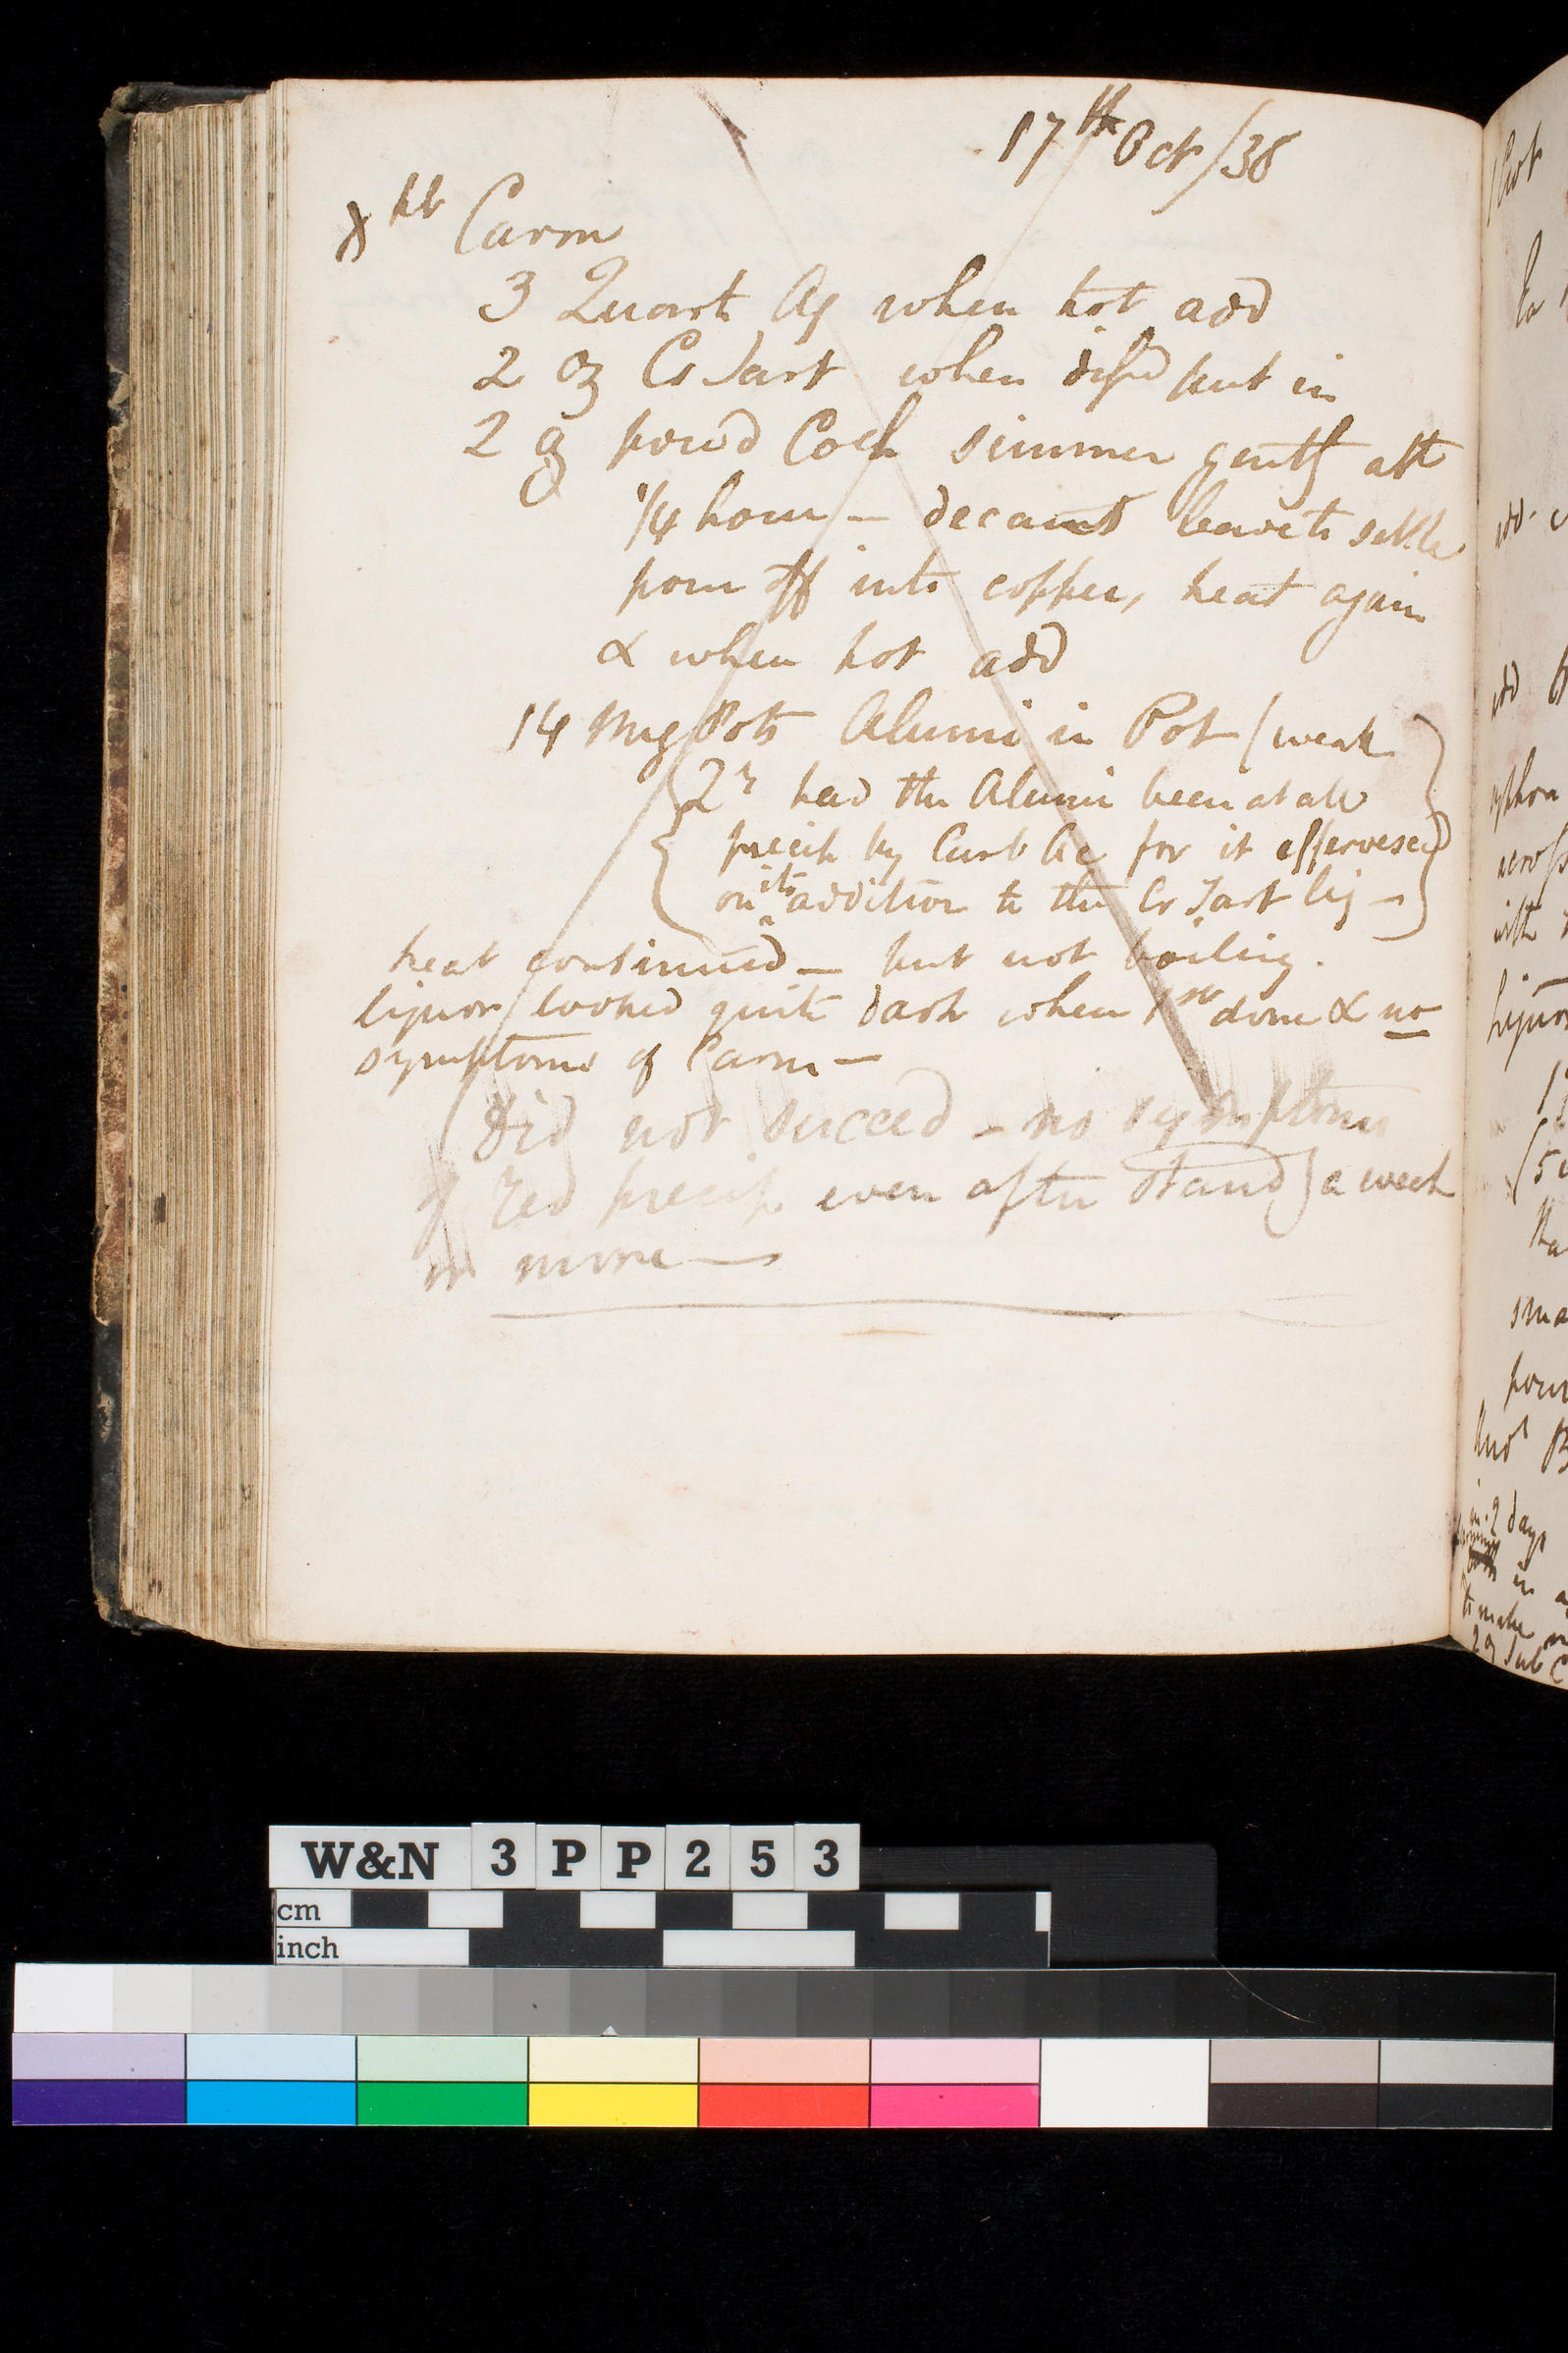 17th Oct/38
Carm
3 Quarts Aq when hot add
2 oz Cr Tart when disd put in
2 oz powd Coch simmer gently abt
1/4 hour – decant leave to settle
pour off into copper, heat again
& when hot add
14 Mig Pots Alumi in Pot (weak
had the Alumi been at all
precip by Carb Ac for it effervesed
on its addition to the Cr Tart liq –
heat continued – but not boiling.
liquor looked quite dark when 1st done & no
symptoms of Carm –
Did not succeed – no symptoms
of red precip even after stand a week
or more –
hot
to
add
add
liquor
pour
2 days
in
to make
W&N 3PP253
cm
inch